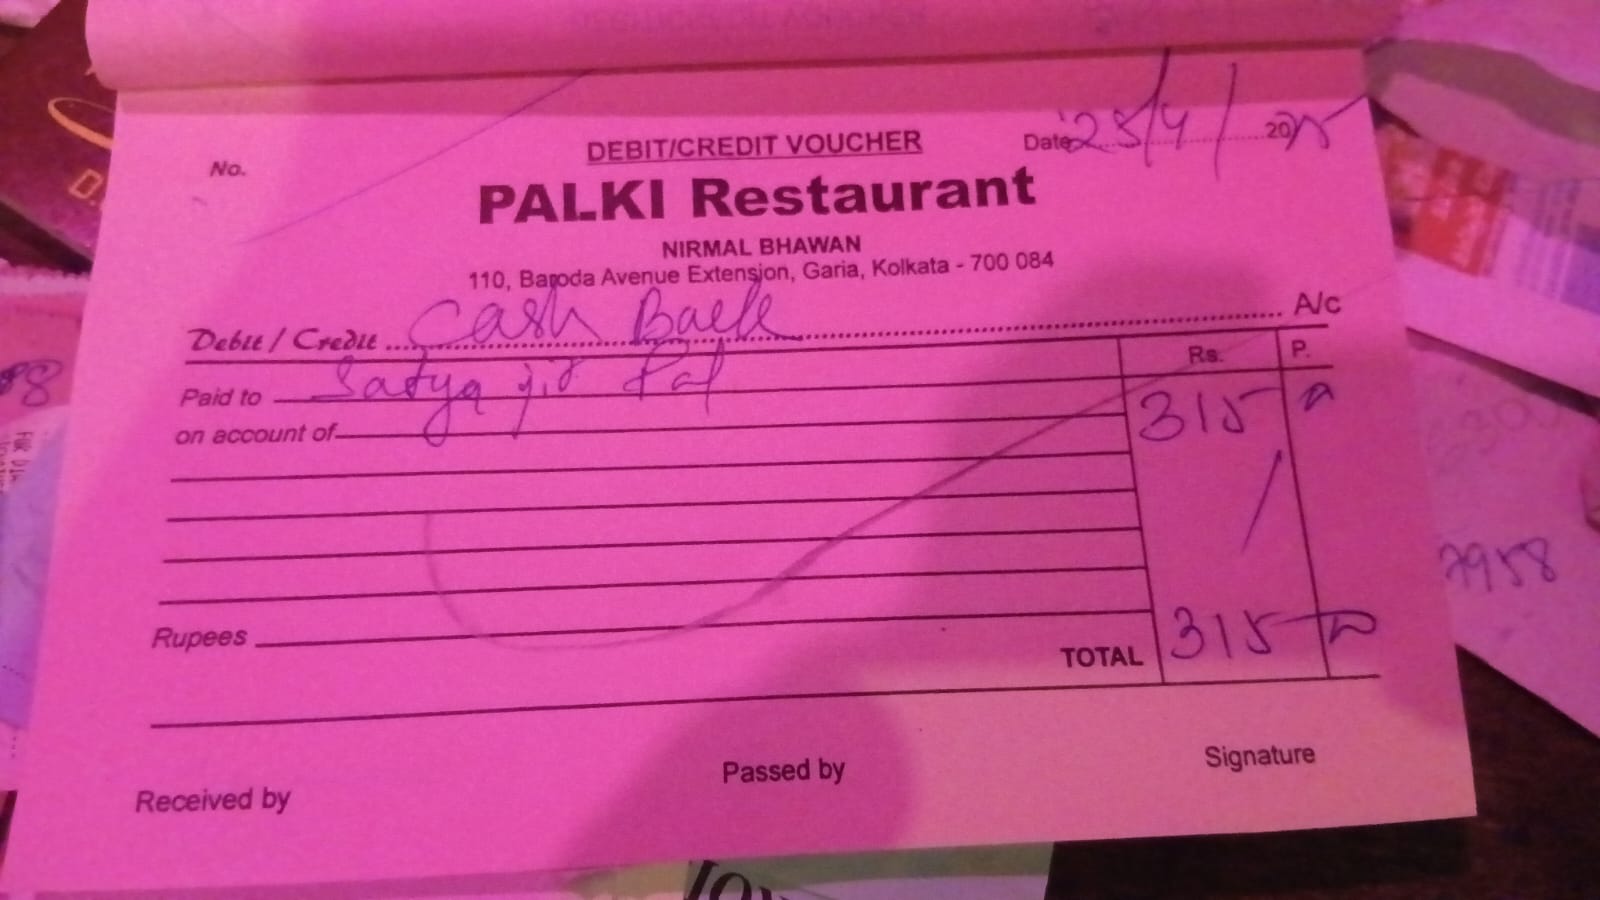 DEBIT/CREDIT VOUCHER
No.
Date 25/4/ 2025
PALKI Restaurant
NIRMAL BHAWAN
110, Baroda Avenue Extension, Garia, Kolkata - 700 084
Debit / Credit Cash Back A/c
Rs. P.
Paid to Satyajit Pal 315
on account of
Rupees
TOTAL 315
Signature
Passed by
Received by
7958